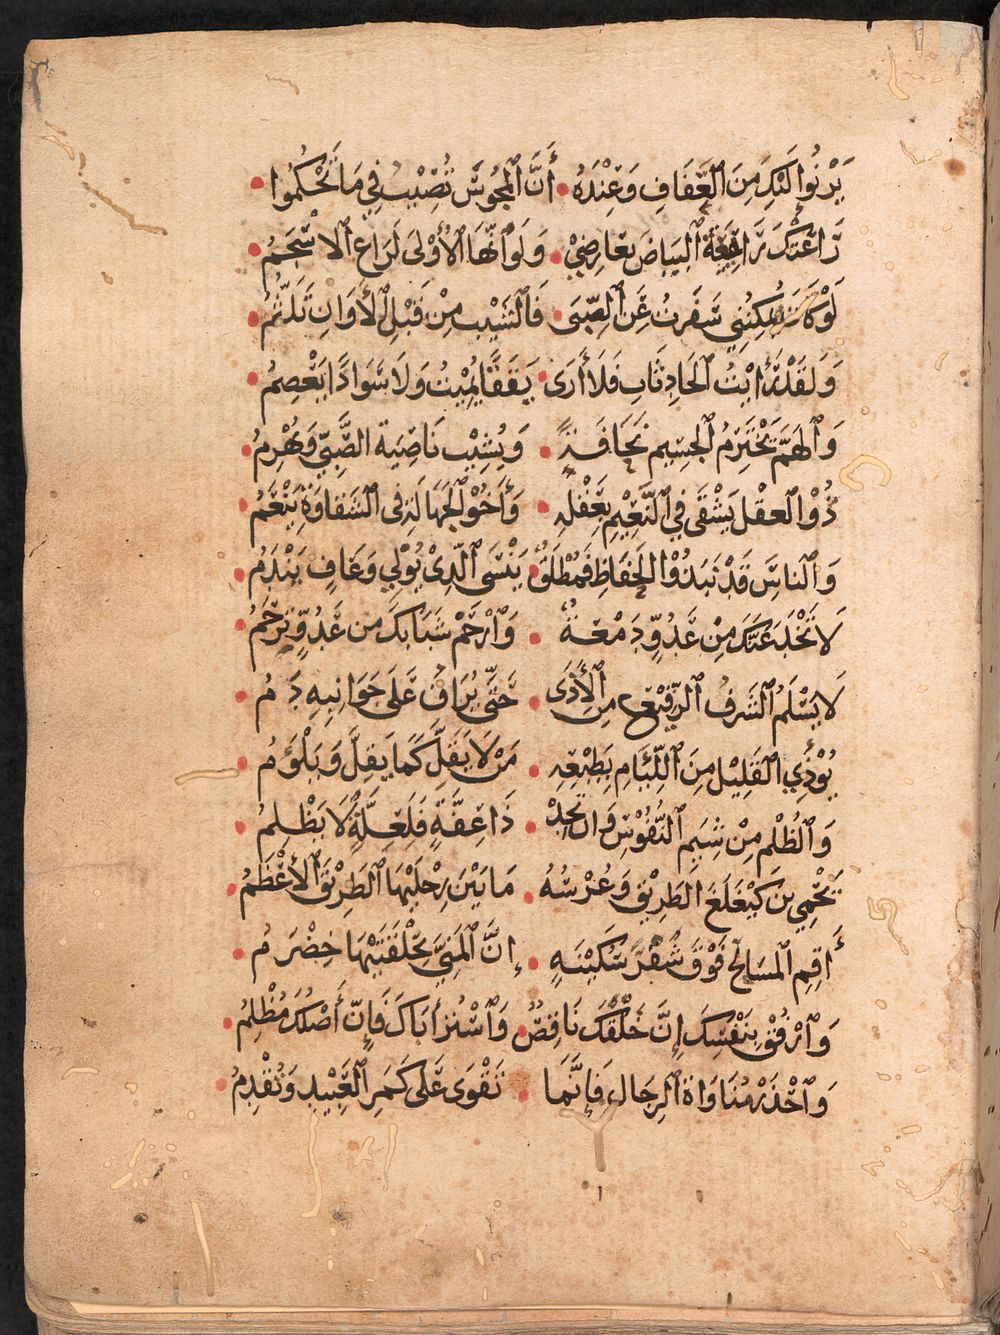 يَرْنُوا إِلَيْكِ مِنَ ٱلْعَفَافِ وَعِنْدَهُ • أَنَّ ٱلْمَجُوسَ تُصِيْبُ فِي مَا تَحْكُمُوا •
رَاعَتْكَ رَاعِيَةُ ٱلْبَيَاضِ بِعَارِضِيْ • وَلَوَ ٱنَّهَا ٱلْأُوْلَى لَرَاعَ ٱلْأَسْحَمُ •
لَوْ كَانَ يُمْكِنُنِي سَفَرْتُ عَنِ ٱلصِّبَى • فَٱلشَّيْبُ مِنْ قَبْلِ ٱلْأَوَانِ تَلَثُّمُ •
وَلَقَدْ رَأَيْتُ ٱلْحَادِثَاتِ فَلَا أَرَى • يَقَقًا يُمِيْتُ وَلَا سَوَادًا يَعْصِمُ •
وَٱلْهَمُّ يَخْتَرِمُ ٱلْجَسِيمَ نَحَافَةً • وَيُشِيْبُ نَاصِيَةَ الصَّبِيِّ وَيُهْرِمُ •
ذُوْ الْعَقْلِ يَشْقَى فِي ٱلنَّعِيْمِ بِعَقْلِهِ • وَأَخُوْ ٱلْجَهَالَةِ فِي ٱلشَّقَاوَةِ يَنْعَمُ •
وَٱلنَّاسُ قَدْ نَبَذُوْا ٱلْحِفَاظَ فَمُطْلَقٌ • يَنْسَى ٱلَّذِيْ يُوْلِي وَعَافٍ يَنْدَمُ •
لَا تَخْدَعَنَّكَ مِنْ عَدُوٍّ دَمْعَةٌ • وَٱرْحَمْ شَبَابَكَ مِنْ عَدُوٍّ تَرْحَمُ •
لَا يَسْلَمُ ٱلشَّرَفُ ٱلرَّفِيْعُ مِنَ ٱلْأَذَى • حَتَّى يُرَاقَ عَلَى جَوَانِبِهِ دَمُ •
يُوْذِي ٱلْقَلِيْلُ مِنَ ٱللِّئَامِ بِطَبْعِهِ • مَنْ لَا يَقِلُّ كَمَا يَقِلُّ وَيَلْؤُمُ •
وَٱلظُّلْمُ مِنْ شِيَمِ ٱلنُّفُوْسِ وَانْ تَجِدْ • ذَا عِفَّةٍ فَلِعِلَّةٍ لَا يَظْلِمُ •
يَحْمِي بن كَيْغَلَغَ الطَرِيْقَ وَعُرْسُهُ • مَا بَيْنَ رِجْلَيْهَا ٱلطَرِيْقُ ٱلْأَعْظَمُ •
أَقِمِ ٱلْمَسَالِحَ فَوْقَ شُفْرِ سُكَيْنَةٍ • إِنَّ ٱلْمَنِيَّ بِحَلْقَتَيْهَا خِضْرَمُ •
وَٱرْفُقْ بِنَفْسِكَ إِنَّ خَلْقَكَ نَاقِصٌ • وَٱسْتُرْ أَبَاكَ فَإِنَّ أَصْلَكَ مُظْلِمُ •
وَٱحْذَرْ مُنَاوَاةَ ٱلرِّجَالِ فَإِنَّمَا • تَقْوَى عَلَى كَمَرِ ٱلْعَبِيْدِ وَتُقْدِمُ •